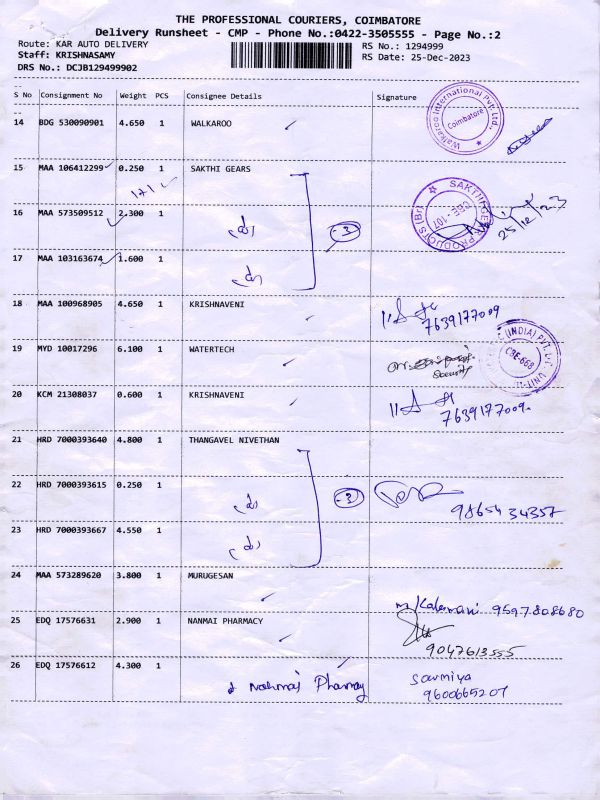 THE PROFESSIONAL COURIERS, COIMBATORE
Delivery Runsheet - CMP - Phone No.:0422-3505555 - Page No.:2
Route: KAR AUTO DELIVERY RS No.: 1294999
Staff: KRISHNASAMY RS Date: 25-Dec-2023
DRS No.: DCJB129499902
S No Consignment No Weight PCS Consignee Details Signature
14 BDG 530090901 4.650 1 WALKAROO
Walkaroo International Pvt. Ltd., Coimbatore
15 MAA 106412299 0.250 1 SAKTHI GEARS
171
16 MAA 573509512 2.300 1 -3
SAKTHI GEAR PRODUCTS (Br) CBE - 107
25/12/23
17 MAA 103163674 1.600 1
18 MAA 100968905 4.650 1 KRISHNAVENI
7639177009
19 MYD 10017296 6.100 1 WATERTECH
Security
(INDIA) PVT. LTD. UNIT-II CBE-668
20 KCM 21308037 0.600 1 KRISHNAVENI
7639177009.
21 HRD 7000393640 4.800 1 THANGAVEL NIVETHAN
22 HRD 7000393615 0.250 1 -3
9865434357
23 HRD 7000393667 4.550 1
24 MAA 573289620 3.800 1 MURUGESAN
m. Kalamani 9597808680
25 EDQ 17576631 2.900 1 NANMAI PHARMACY
9047613555
26 EDQ 17576612 4.300 1 Nanmai Pharmay Sowmiya
9600665207